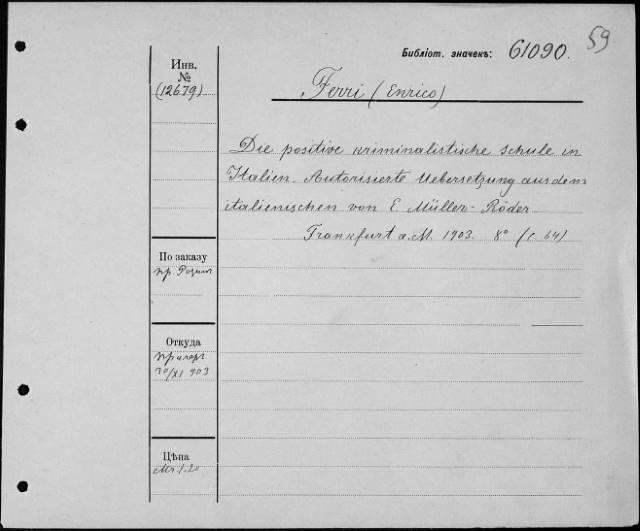 59
Библіот. значекъ: 61090.
Инв.
№
(12679)
Ferri (Enrico)
Die positive kriminalistische Schule in
Italien. Autorisierte Uebersetzung aus dem
italienischen von E. Müller-Röder
Frankfurt a. M. 1903. 8° (c. 64)
По заказу
пр.
Откуда
20/XI 903
Цѣна
Mr. 1.20